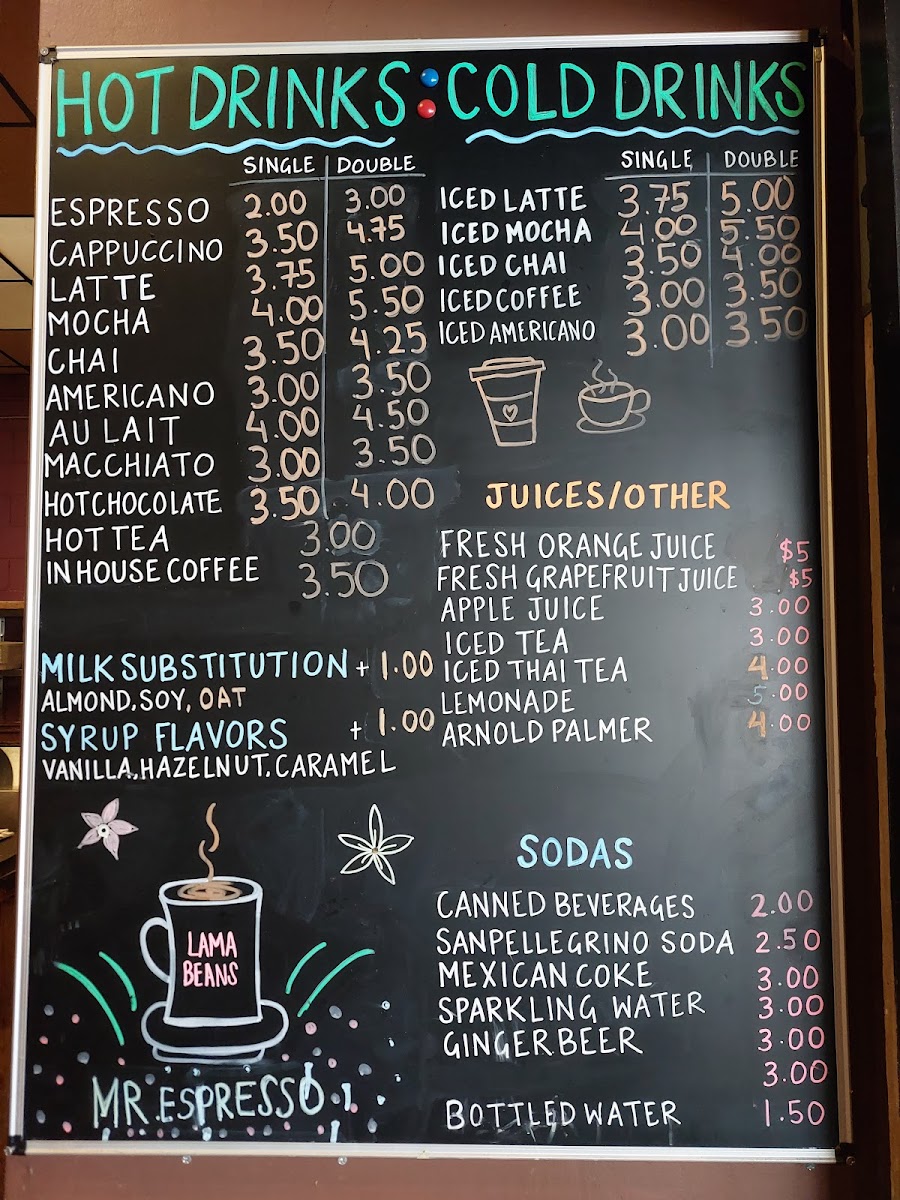 HOT DRINKS : COLD DRINKS
SINGLE DOUBLE
ESPRESSO 2.00 3.00
CAPPUCCINO 3.50 4.75
LATTE 3.75 5.00
MOCHA 4.00 5.50
CHAI 3.50 4.25
AMERICANO 3.00 3.50
AU LAIT 4.00 4.50
MACCHIATO 3.00 3.50
HOT CHOCOLATE 3.50 4.00
HOT TEA 3.00
IN HOUSE COFFEE 3.50
MILK SUBSTITUTION + 1.00
ALMOND, SOY, OAT
SYRUP FLAVORS + 1.00
VANILLA, HAZELNUT, CARAMEL
LAMA
BEANS
MR. ESPRESSO
SINGLE DOUBLE
ICED LATTE 3.75 5.00
ICED MOCHA 4.00 5.50
ICED CHAI 3.50 4.00
ICED COFFEE 3.00 3.50
ICED AMERICANO 3.00 3.50
JUICES/OTHER
FRESH ORANGE JUICE $5
FRESH GRAPEFRUIT JUICE $5
APPLE JUICE 3.00
ICED TEA 3.00
ICED THAI TEA 4.00
LEMONADE 5.00
ARNOLD PALMER 4.00
SODAS
CANNED BEVERAGES 2.00
SANPELLEGRINO SODA 2.50
MEXICAN COKE 3.00
SPARKLING WATER 3.00
GINGER BEER 3.00
3.00
BOTTLED WATER 1.50